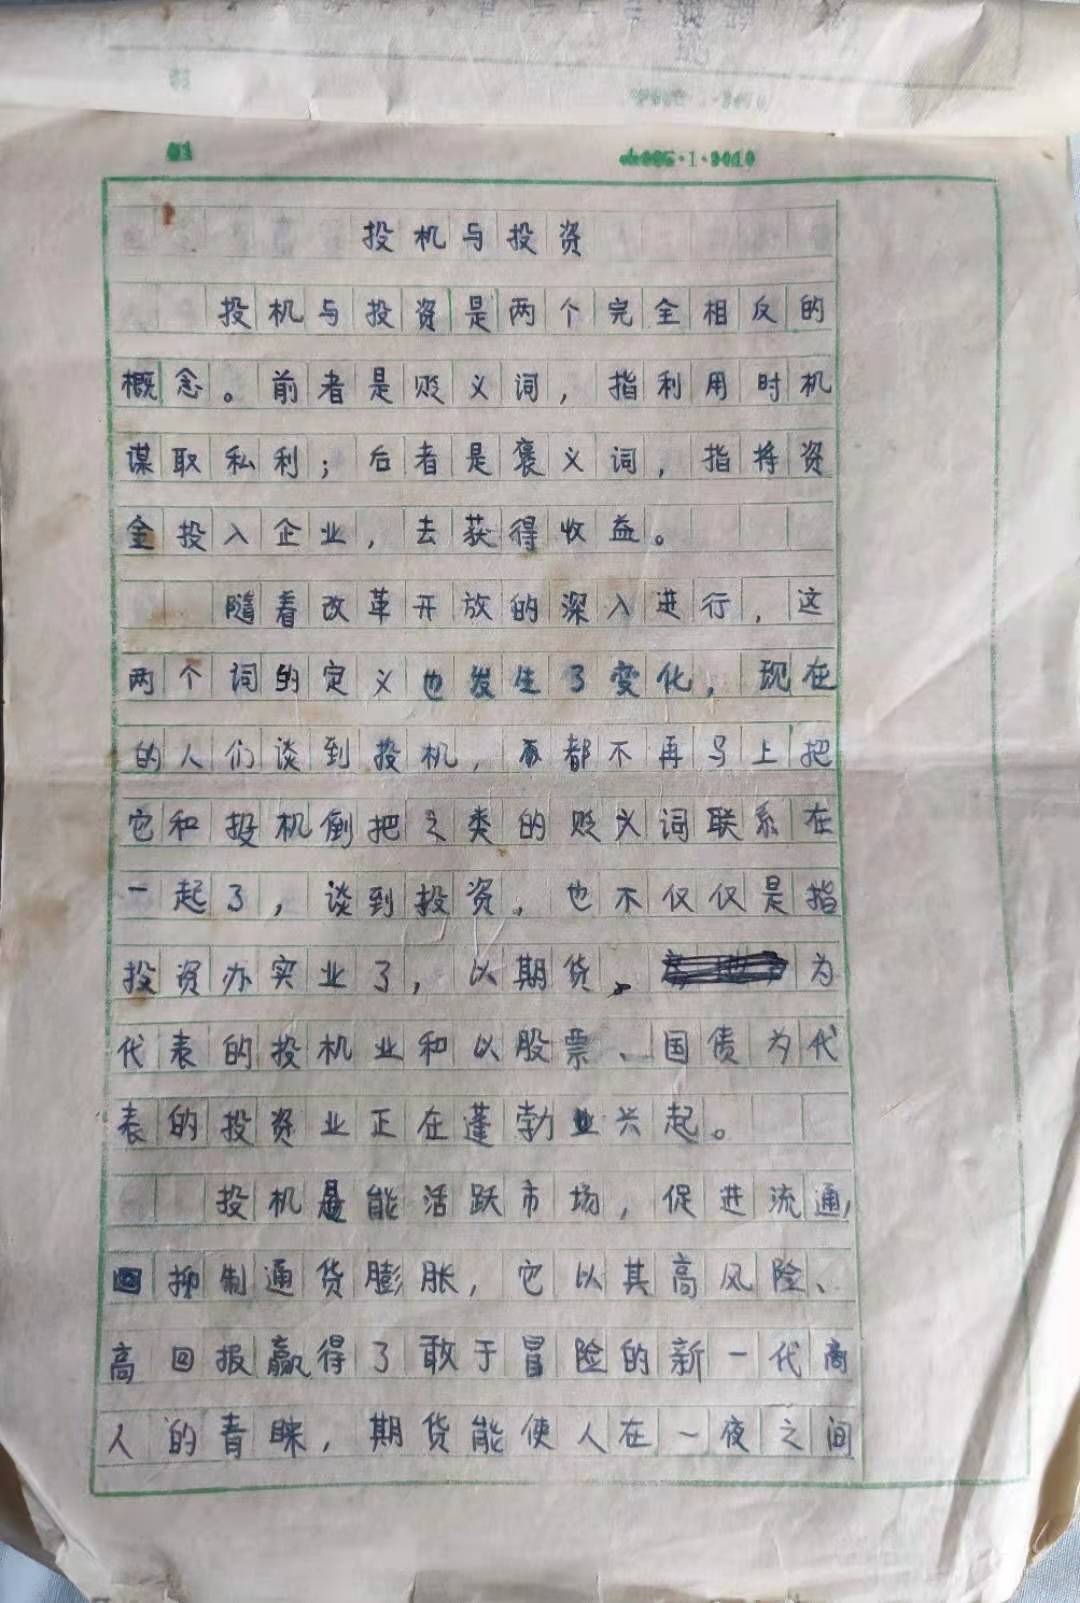 投机与投资
投机与投资是两个完全相反的
概念。前者是贬义词，指利用时机
谋取私利；后者是褒义词，指将资
金投入企业，去获得收益。
随着改革开放的深入进行，这
两个词的定义也发生了变化，现在
的人们谈到投机，都不再马上把
它和投机倒把之类的贬义词联系在
一起了，谈到投资，也不仅仅是指
投资办实业了，以期货、为
代表的投机业和以股票、国债为代
表的投资业正在蓬勃兴起。
投机能活跃市场，促进流通，
抑制通货膨胀，它以其高风险、
高回报赢得了敢于冒险的新一代商
人的青睐，期货能使人在一夜之间